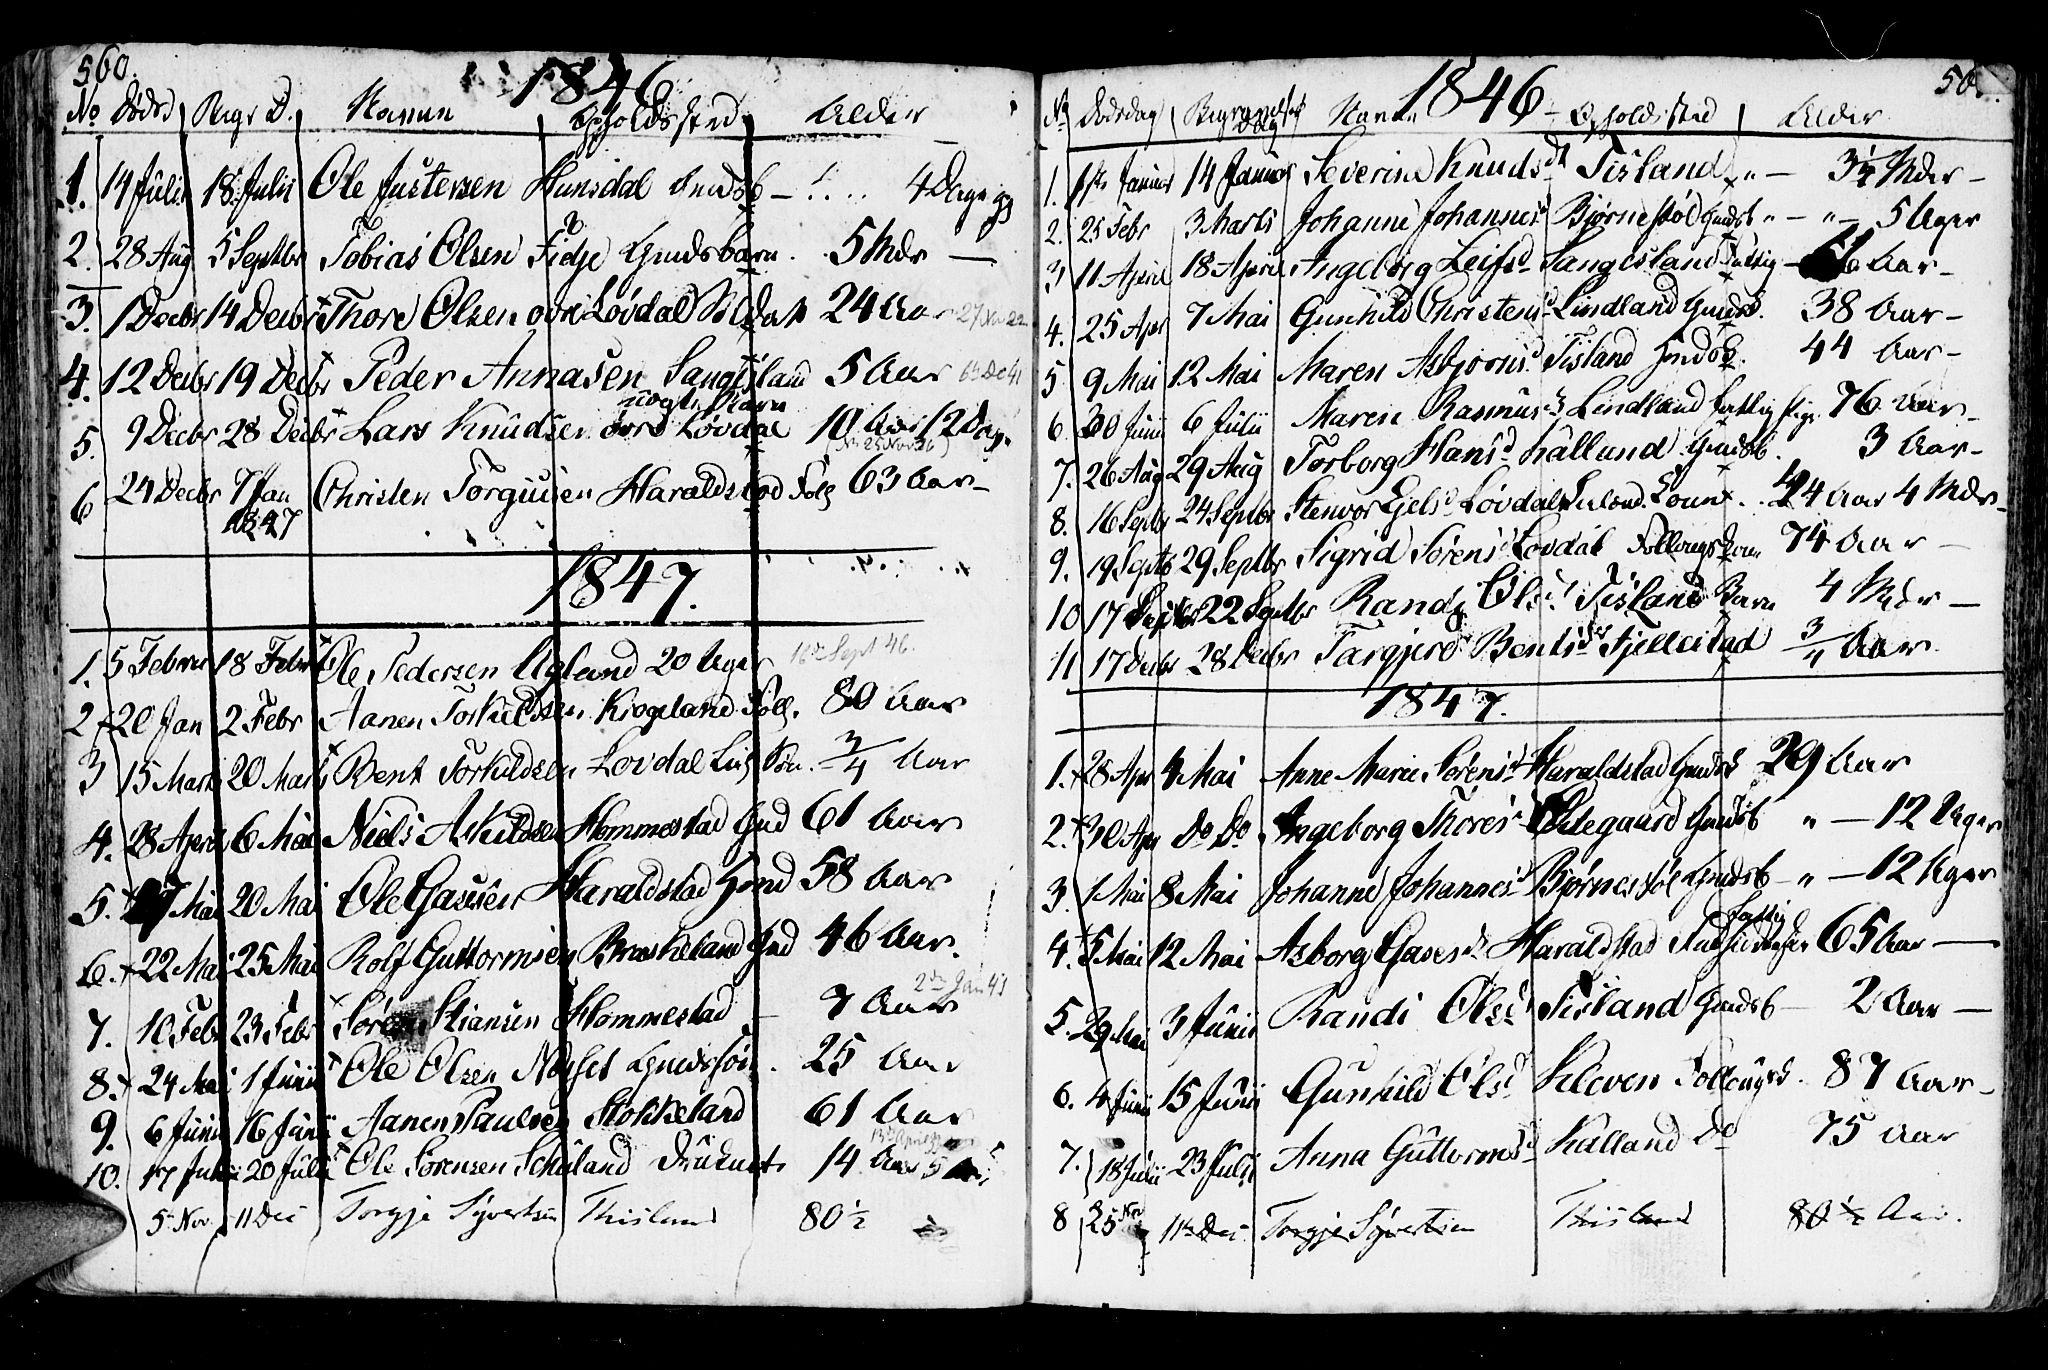 560.
1846
No Døds D Begr D. Navn Opholdssted Alder
1. 14 Julii 18 Julii Ole Justersen Hunsdal Gmdsb — 4 Dage
2. 28 Aug 5 Septbr Tobias Olsen Fidje Gmdsbarn 5 Mdr —
3. 1 Decbr 14 Decbr Thore Olsen Løvdal Soldat 24 Aar
4. 12 Decbr 19 Decbr Peder Annasen Sangesland 5 Aar
5. 9 Decbr 28 Decbr Lars Knudsen Løvdal 10 Aar 12 Dage
6 24 Decbr 7 Jan 1847 Christen Torgusen Haraldstad Folg 63 Aar —
1847.
1. 5 Februar 18 Febr Ole Pedersen Egland 20 Uger 16de Sept 46.
2. 20 Jan 2 Febr Aanen Torkildsen Krogeland Foll. 80 Aar
3 15 Marts 20 Marts Bent Torkildsen Løvdal 3/4 Aar
4. 28 April 6 Mai Niels Askildsen Hommestad Gmd 61 Aar
5. 17 Mai 20 Mai Ole Gasesen Haraldstad Gmd 58 Aar
6. 22 Mai 25 Mai Rolf Guttormsen Braskeland Gmd 46 Aar.
7. 10 Febr 23 Febr Søren Stiansen Hommestad — Aar
8. 24 Mai 1 Junii Ole Olsen Gmdssøn. 25 Aar
9. 6 Junii 16 Junii Aanen Paulsen Stokkeland 61 Aar
10. 17 Julii 20 Julii Ole Sørensen druknet 14 Aar 5
5 Nov. 11 Dec Torgje Syvertsen Thisland 80 1/2
1846
No Dødsdag Begravelsesdag Navn Opholdssted Alder
1. Januar 14 Januar Severine Knudsd Tisland " — 3 1/4 Mdr —
2. 25 Febr 3 Marts Johanne Johannesd Bjørnestøl Gmdsb " — " — 5 Uger
3 11 April 18 April Angeborg Leifsd Sangesland fattig — Aar —
4. 25 Apr 7 Mai Gunhild Christensd Lindland Gmds. 38 Aar —
5 9 Mai 12 Mai Maren Asbjørnsd Tisland Gmdsk. 44 Aar —
6. 30 Junii 6 Julii Maren Rasmusd Lindland fattig 76 Aar —
7. 26 Aug 29 Aug Torborg Hansd Kalland Gmdsb. 3 Aar —
8. 16 Septbr 24 Septbr Stenvor Løvdal 24 Aar 4 Mdr —
9. 19 Septb 29 Septbr Sigrid Sørensd Løvdal Follaugskone 74 Aar —
10 17 Septbr 22 Septbr Randi Olsd Tisland Barn 4 Mdr —
11 17 Decbr 28 Decbr Targjerd Bentsd Fjellestad 3/4 Aar.
1847.
1. 28 Apr 4 Mai Anne Marie Sørensd Haraldstad Gmdsb 29 Aar
2. 30 Apr Do Do Angeborg Thoresd Ødegaard Gmdsb " — 12 Uger
3. 1 Mai 8 Mai Johanne Johannesd Bjørnestøl Gmdsb — " — 12 Uger
4. 5 Mai 12 Mai Asborg Gasesd Haraldstad fattig 65 Aar —
5. 29 Mai 3 Junii Randi Olsd Tisland Gmdsb — 2 Aar —
6. 4 Junii 15 Junii Gunhild Olsd Kleven Follaugsk. 87 Aar —
7. 18 Julii 23 Julii Anna Guttormsd Kalland Do 75 Aar
8 25 Nov 11 Dec. Torgje Syvertsen Thisland 80 1/2 Aar.